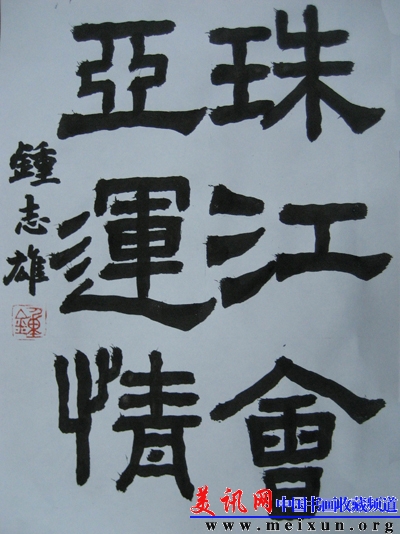 珠江會
亞運情
鍾志雄
鍾
美讯网 中国书画收藏频道
www.meixun.org